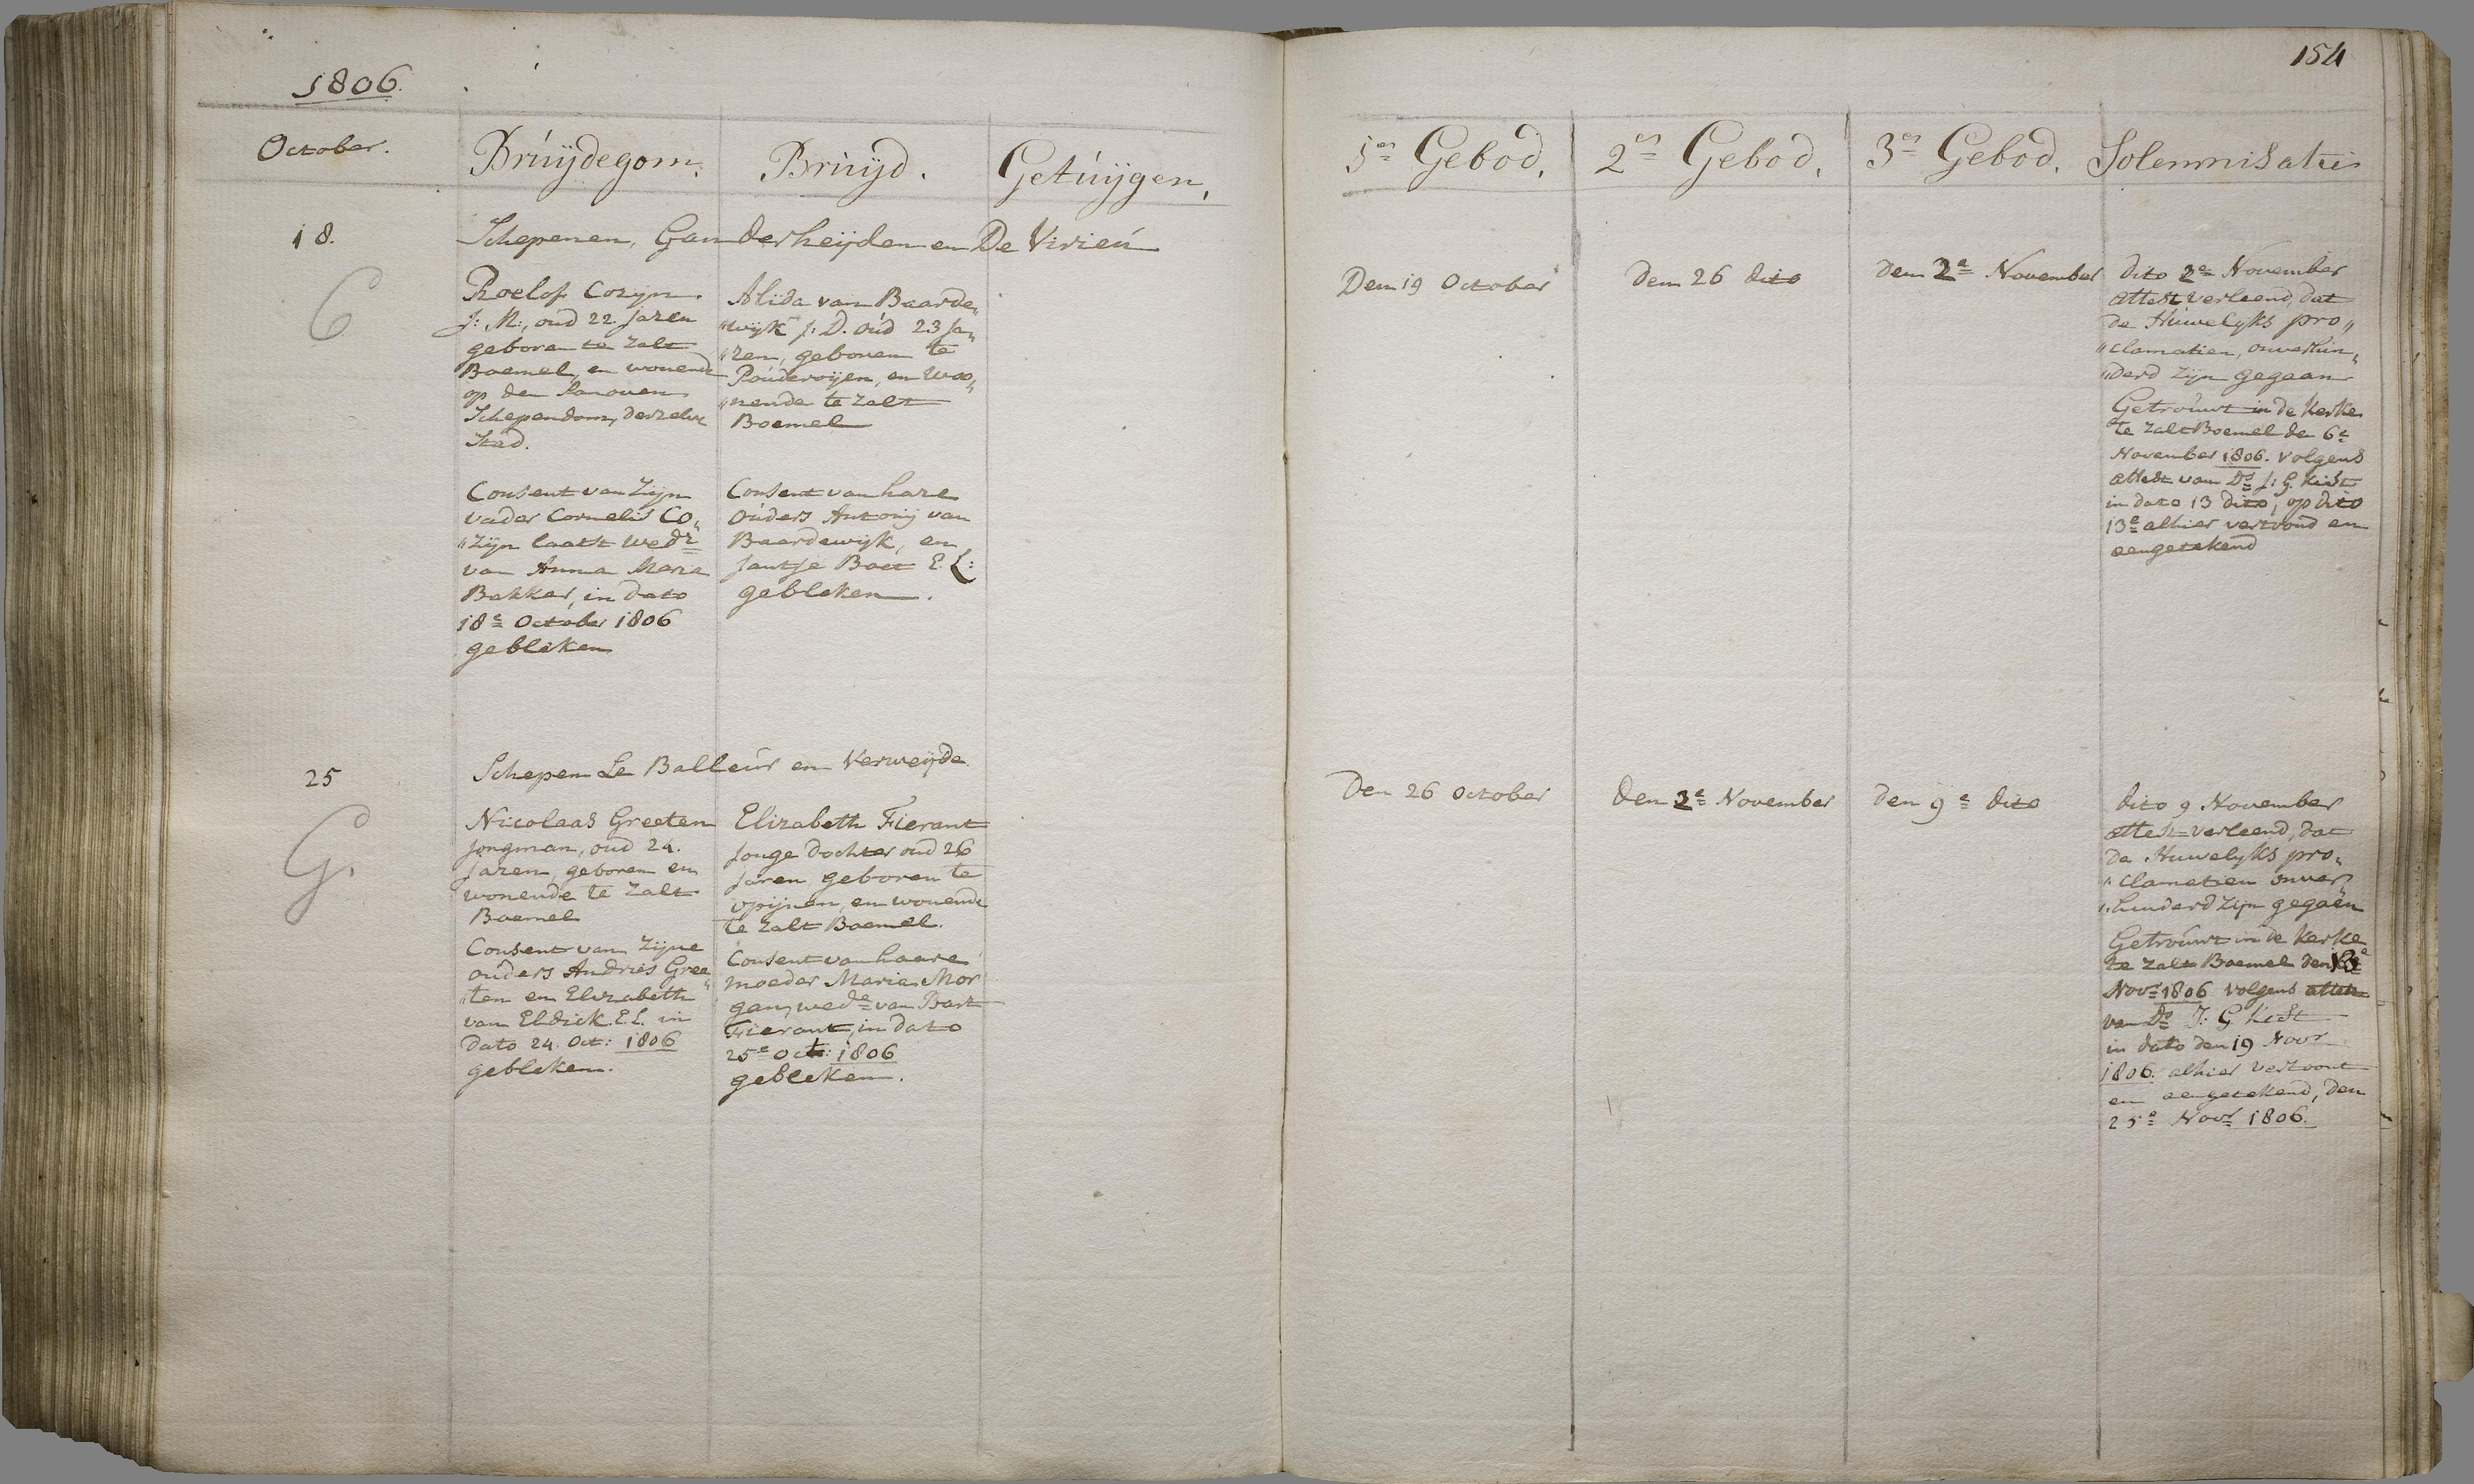 1806.
October.
Bruijdegom.
Bruijd.
Getuijgen,
18.
Schepenen, Gan derheijden en De Virieu
C
Roelof Cozijn
J: M:, oud 22. Jaren
geboren te Zalt
Boemel, en wonende
op den
Schependom, derzelve
Stad.
Consent van Zijn
vader Cornelis Co„
„zijn laatst Wedr
van Anna Maria
Bakker, in dato
18e October 1806
gebleken
Alida van Baarde„
„wijk J: D. oud 23 Ja„
„ren, geboren te
Pouderoijen, en Woo„
„nende te Zalt
Boemel
Consent van hare
Ouders Antonij van
Baardewijk, en
Jantje Boet E. L:
gebleken.
25
Schepen Le Balleur en Verweijde.
G.
Nicolaas Greeten
Jongman, oud 24.
Jaren, geboren en
wonende te Zalt
Boemel
Consent van Zijne
ouders Andries Gree„
„ten en Elizabeth
van Eldick. E.L. in
dato 24. Oct: 1806
gebleken.
Elizabeth Fierant
Jonge dochter oud 26
Jaren geboren te
opijnen, en wonende
te Zalt Boemel.
Consent van haare
moeder Maria Mor
gan, wede van Bart
Fierant, in dato
25e Oct: 1806
gebleken.
154
1en Gebod,
2en Gebod,
3en Gebod.
Solemnisatie
Den 19 October
Den 26 dito
den 2e November
dito 2e November
attest verleend, dat
de Huwelyks pro„
„clamatien, onverhin„
„derd zijn gegaan
Getrouwt in de Kerke
te Zalt Boemel den 6e
November 1806. volgens
attest van Ds J: G. Kist
in dato 13 dito, op dito
13e alhier vertoond en
aengetekend
Den 26 October
den 2e November
den 9e dito
dito 9 November
attest verleend, dat
de Huwelyks pro„
„clamatien onver„
„hinderd zijn gegaen
Getrouwt in de Kerke
te Zalt Boemel den
Novr 1806 volgens attest
van Ds J: G Kist
in dato den 19 Novr
1806. alhier vertoont
en aengetekend, den
25e Novr 1806.